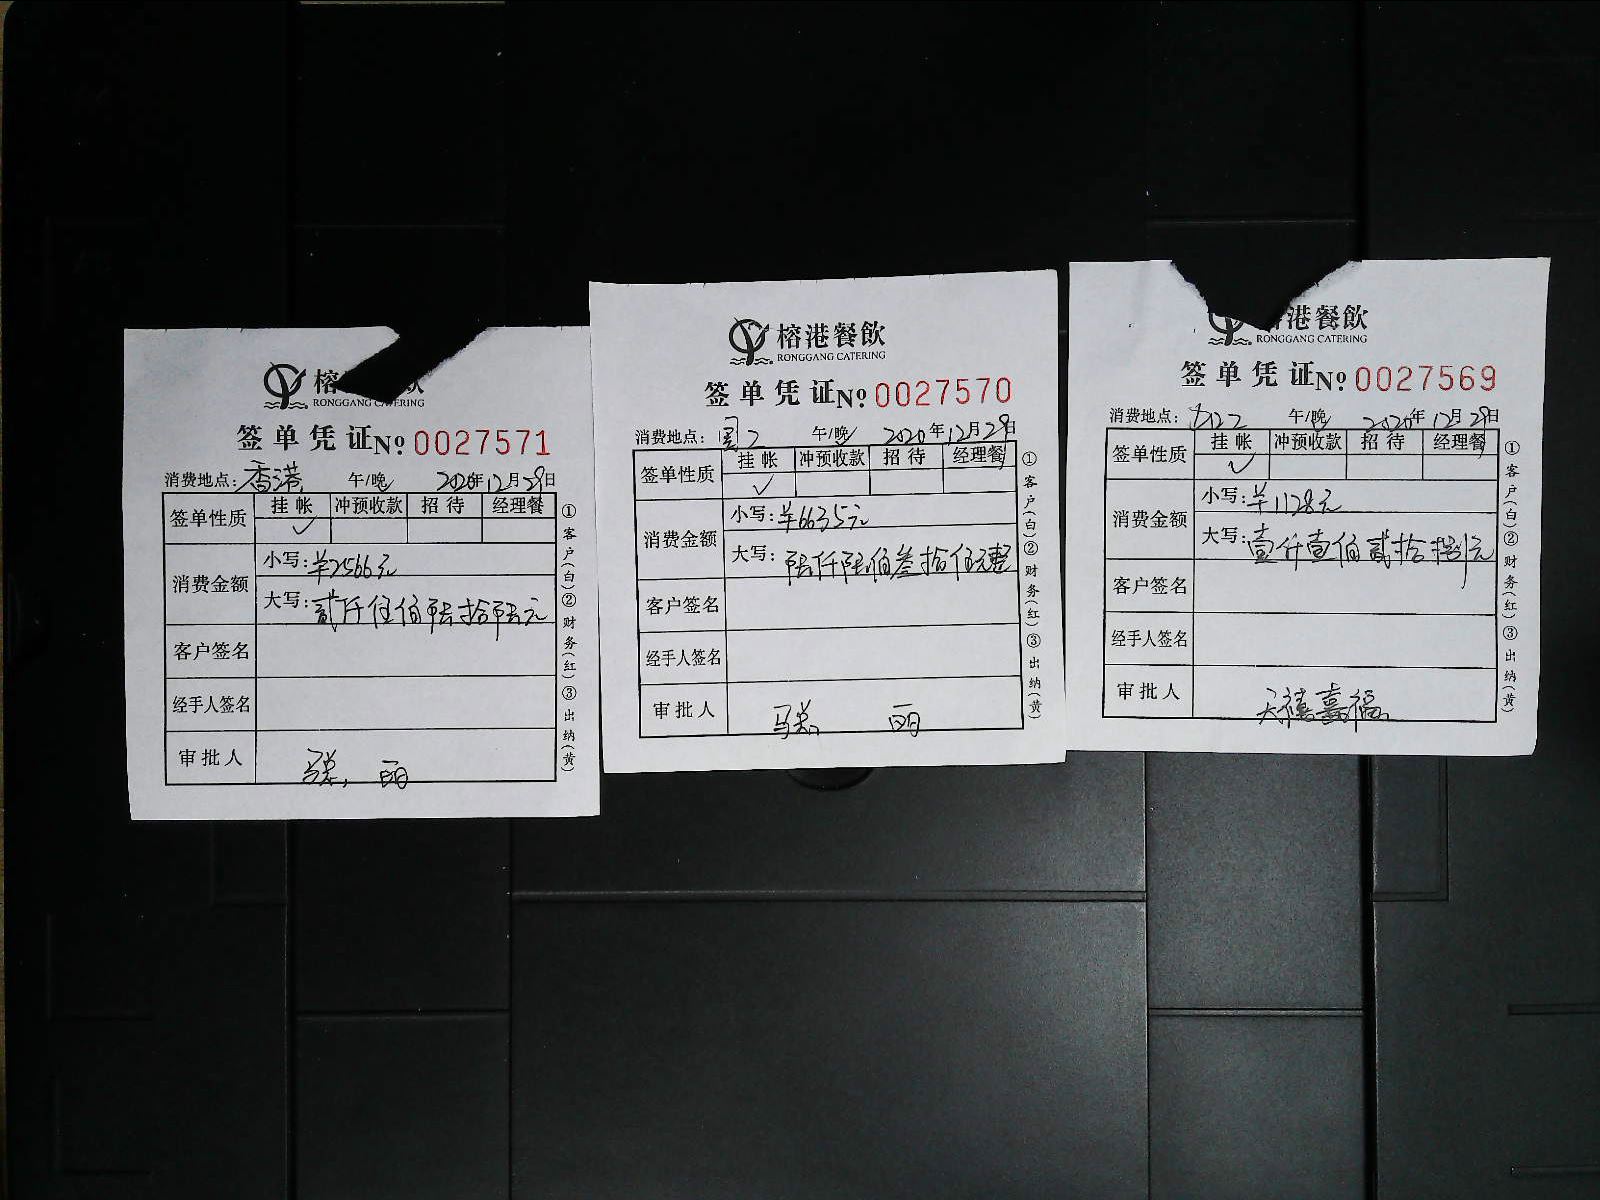 榕
RONGGANG CATERING
签单凭证 No 0027571
消费地点:香港 午/晚 2020年12月29日
签单性质 挂帐 冲预收款 招待 经理餐
✓
消费金额
小写:¥2566元
大写:贰仟伍佰陆拾陆元
客户签名
经手人签名
审批人
①客户(白)②财务(红)③出纳(黄)
榕港餐飲
RONGGANG CATERING
签单凭证 No 0027570
消费地点: 午/晚 2020年12月29日
签单性质 挂帐 冲预收款 招待 经理餐
✓
消费金额
小写:¥6635元
大写:陆仟陆佰叁拾伍元整
客户签名
经手人签名
审批人
①客户(白)②财务(红)③出纳(黄)
港餐飲
RONGGANG CATERING
签单凭证 No 0027569
消费地点: 午/晚 2020年12月29日
签单性质 挂帐 冲预收款 招待 经理餐
✓
消费金额
小写:¥1128元
大写:壹仟壹佰贰拾捌元
客户签名
经手人签名
审批人
①客户(白)②财务(红)③出纳(黄)